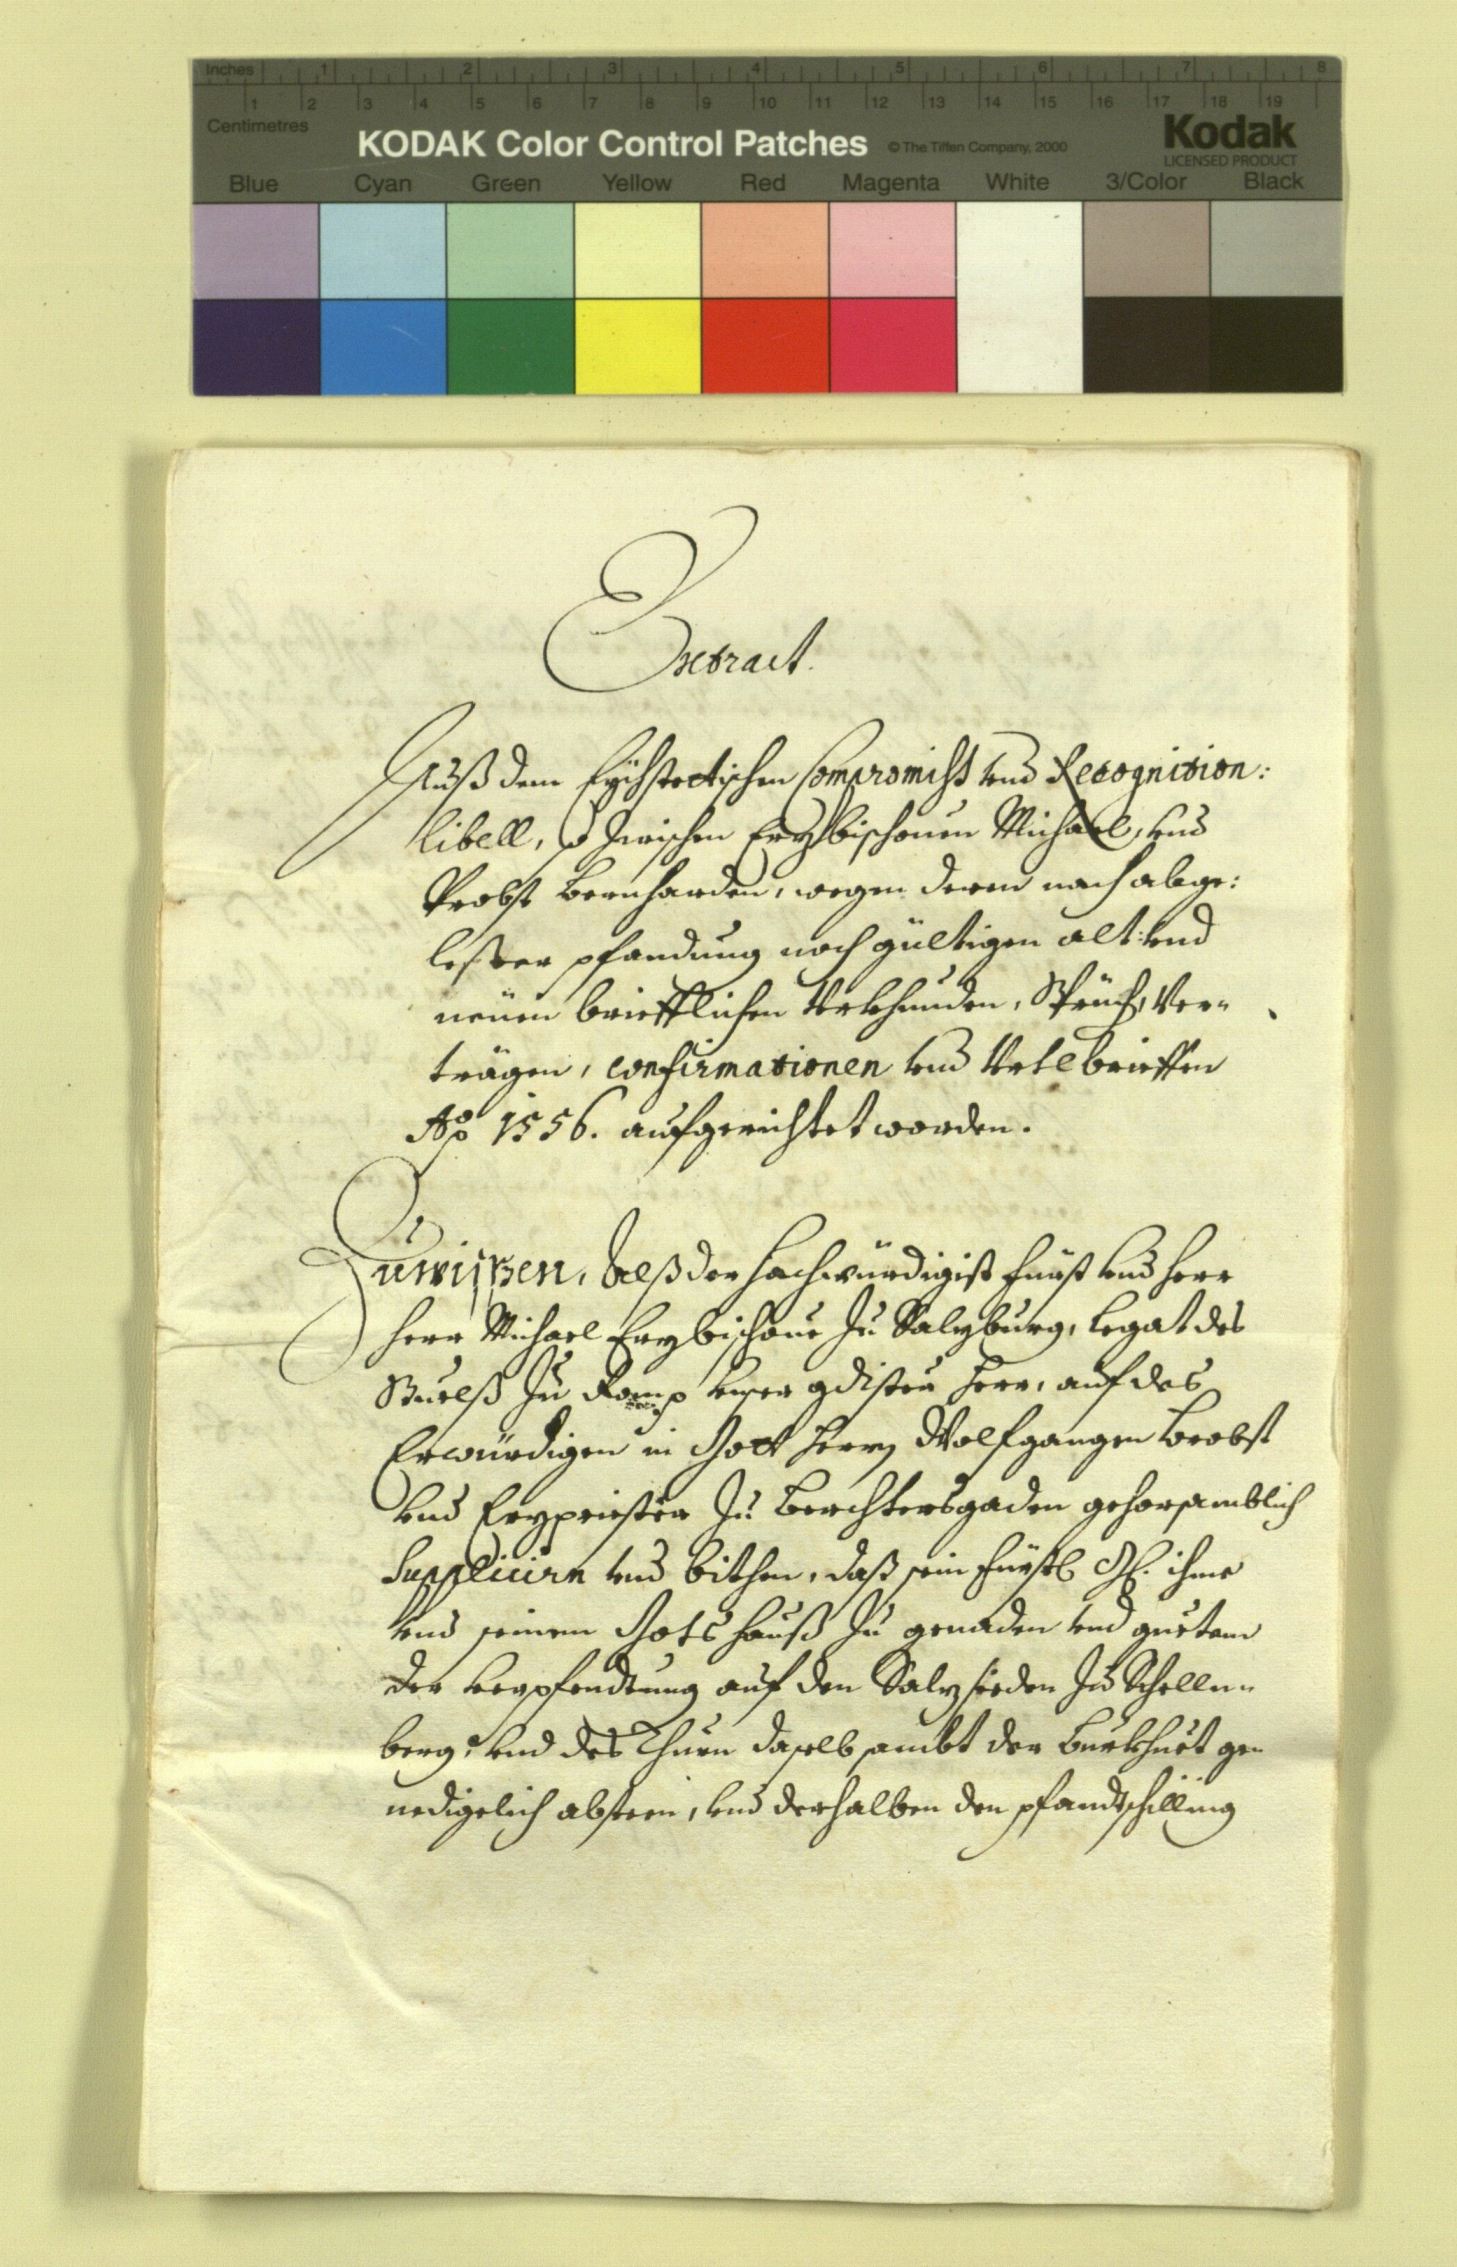 Inches 1 2 3 4 5 6 7 8
1 2 3 4 5 6 7 8 9 10 11 12 13 14 15 16 17 18 19
Centimetres
KODAK Color Control Patches © The Tiffen Company, 2000 Kodak
LICENSED PRODUCT
Blue Cyan Green Yellow Red Magenta White 3/Color Black
Extract.
Auß dem Eychstettischen Compromiss vnd Recognition:
libell, so zwischen Erzbischouen Michael, vnd
Probst Bernharden, wegen deren nach abge:
leßter pfandung noch gültigen alt: vnd
neuen brieflichen Vrkhunden, Sprüch, Ver=
trägen, confirmationen vnd Vrtlbrieffen
Aō 1556. aufgerichtet worden.
Zuwissen, dass der hochwürdigist Fürst vnd herr
herr Michael Erzbischoue Zu Salzburg, Legat des
Stuelß Zu Rom, vnser gdister herr, auf des
Erwürdigen in Gott herrn Wolfgangen Brobst
vnd Erzpriester Zu Berchtersgaden gehorsamblich
Suppliciern vnd bithen, daß sein Fürstl. G. ihme
vnd seinem Gotshauß Zu genaden vnd guetem
der verpfendtung auf den Salzsieden Zu Schelln=
berg, vnd des Thurn daselb sambt der Burkhuet ge=
nedigelich absteen, vnd derhalben den pfandtschilling